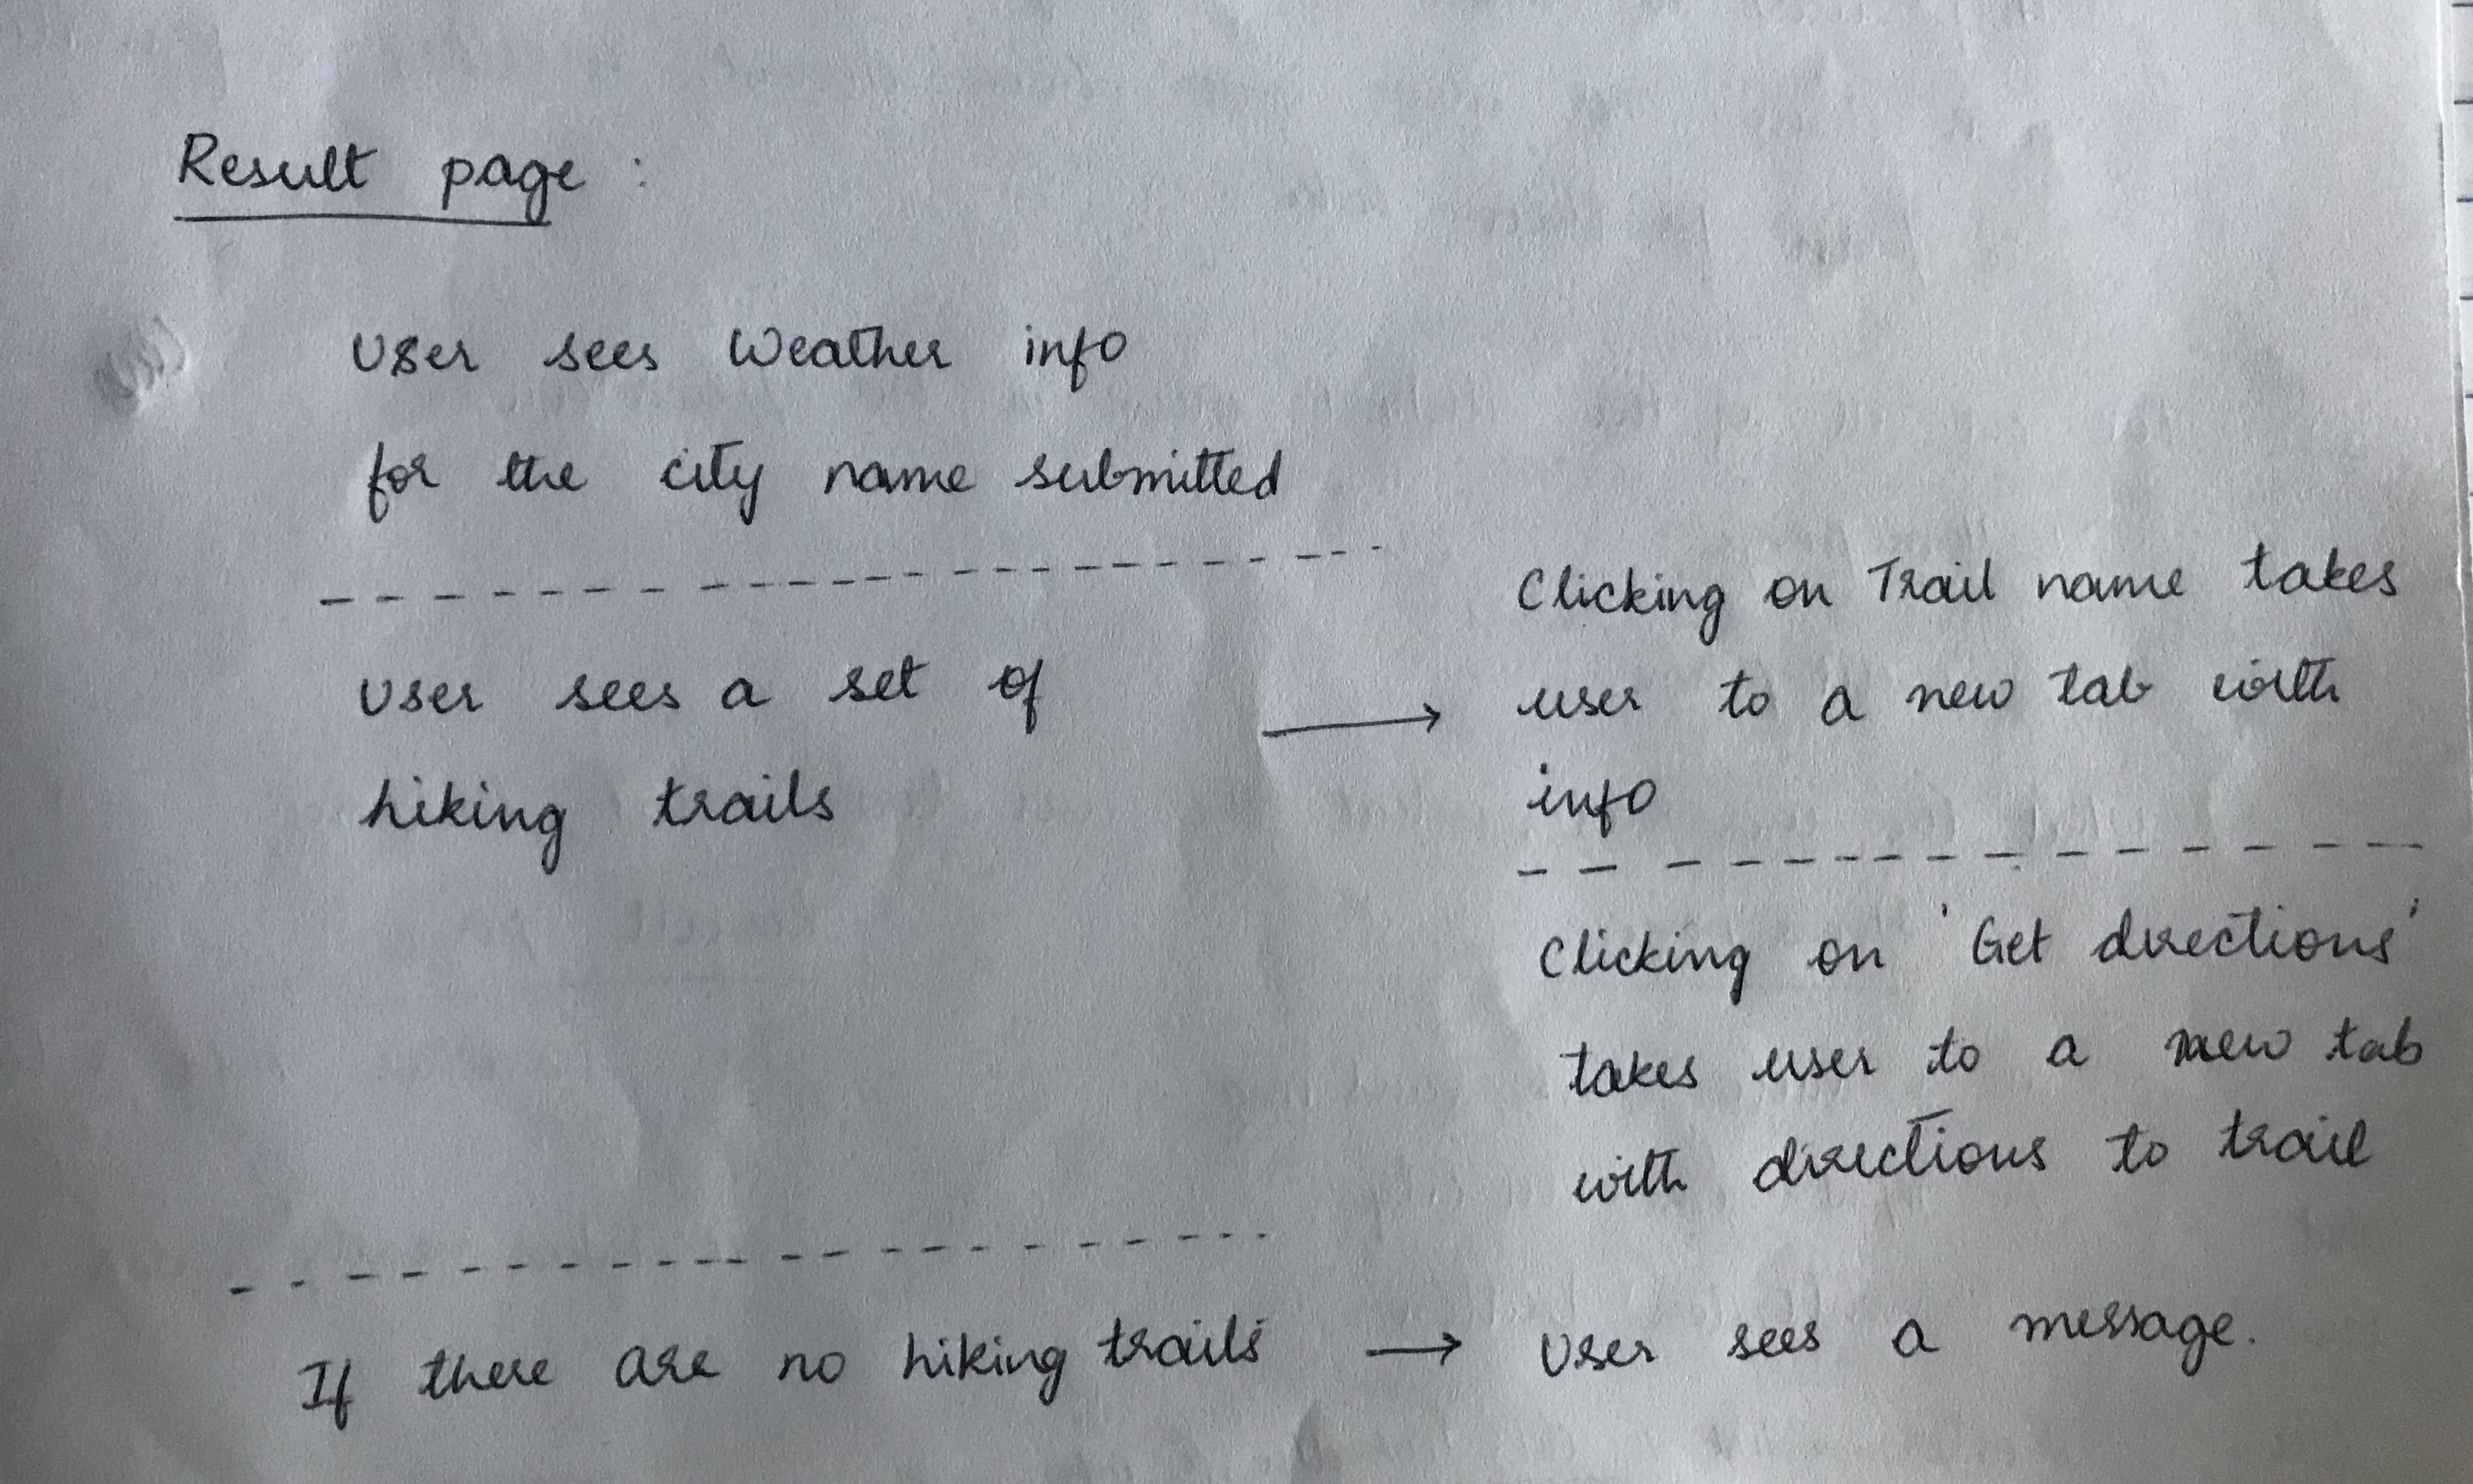 Result page :
User sees Weather info
for the city name submitted
User sees a set of
hiking trails
→
Clicking on Trail name takes
user to a new tab with
info
Clicking on 'Get directions'
takes user to a new tab
with directions to trail
If there are no hiking trails → User sees a message.